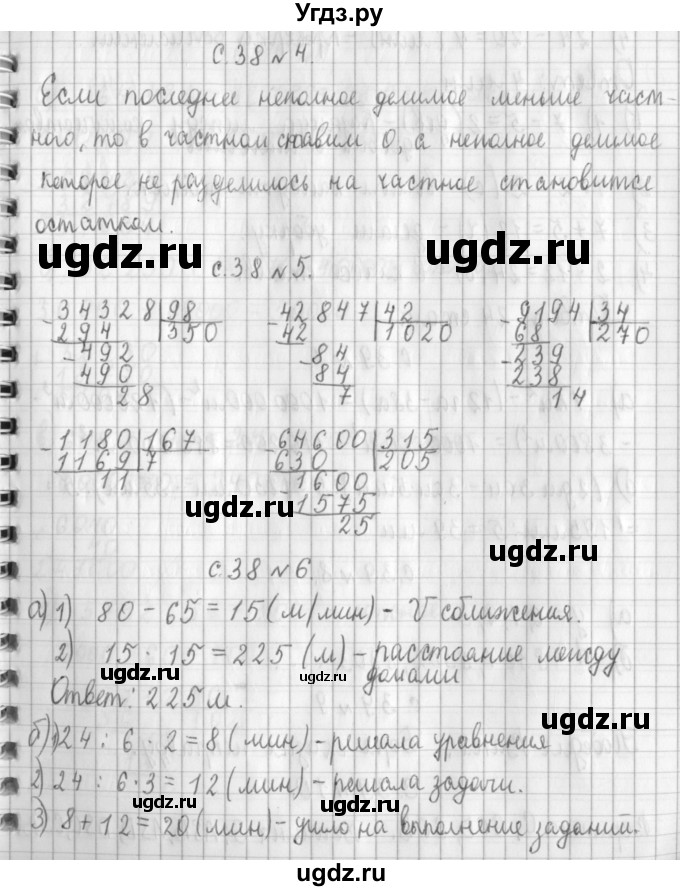 Угдз.ру
с.38 № 4.
Если последнее неполное делимое меньше част-
ного, то в частном ставим 0, а неполное делимое
которое не разделилось на частное становится
остатком.
ugdz.ru ugdz.ru
с.38 № 5.
-34328|98 -42847|42 -9194|34
294 |350 42 |1020 68 |270
-492 -84 -239
490 84 238
28 7 14
-1180|167 -64600|315
1169|7 630 |205
11 -1600
ugdz.ru
1575
25
ugdz.ru
с.38 № 6.
а) 1) 80 - 65 = 15 (м/мин) - V сближения.
2) 15 · 15 = 225 (м) - расстояние между
домами
ugdz.ru ugdz.ru
Ответ: 225 м.
ugdz.ru
б) 1) 24 : 6 · 2 = 8 (мин) - решала уравнения
2) 24 : 6 · 3 = 12 (мин) - решала задачи.
ugdz.ru ugdz.ru
3) 8 + 12 = 20 (мин) - ушло на выполнение заданий.
ugdz.ru